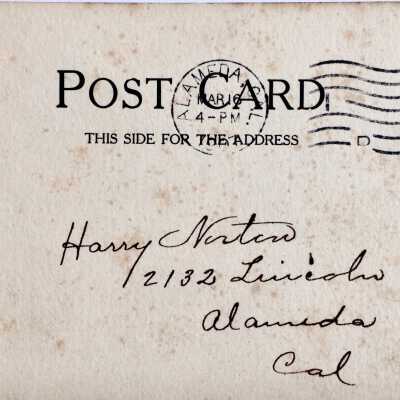 POST CARD
ALAMEDA, CAL.
MAR 16
4-PM
THIS SIDE FOR THE ADDRESS
Harry Norton
2132 Lincoln
Alameda
Cal